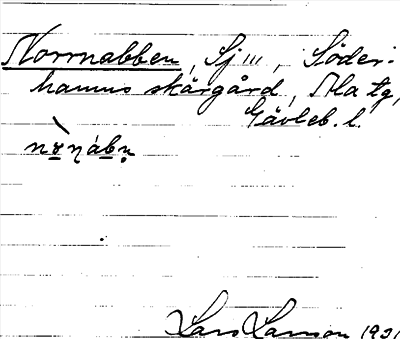 Norrnabben, Sj III, Söder-
hamns skärgård, Ala tg,
Gävleb. l.
Lars Larsson 1931